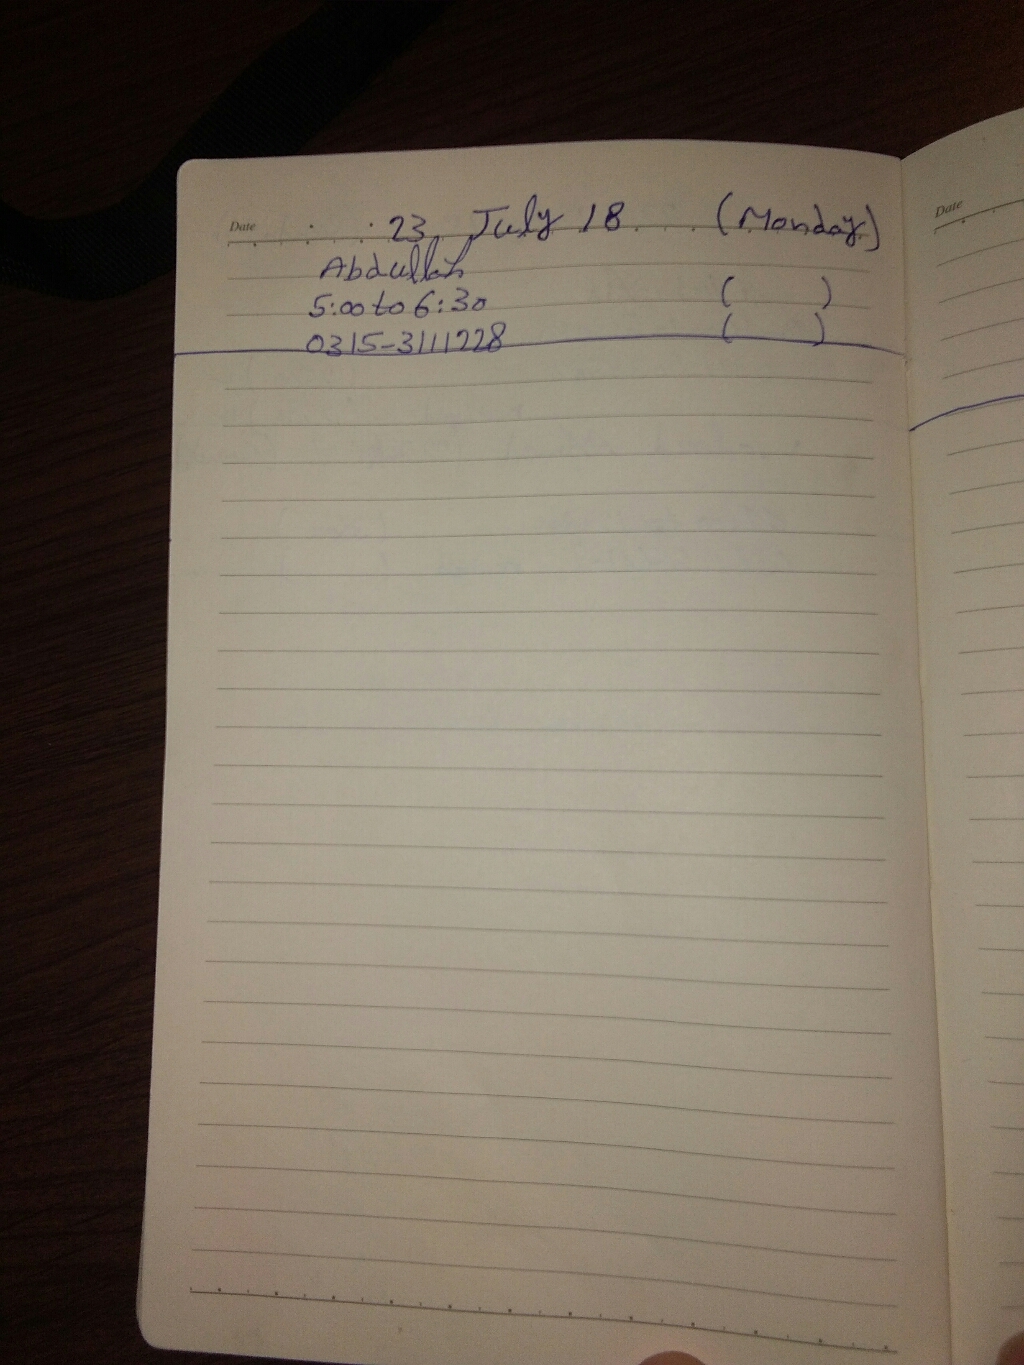 Date 23, July 18 (Monday)
Abdullah
5:00 to 6:30 ( )
0315-3111228 ( )
Date